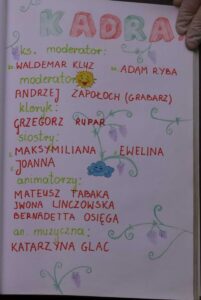 KADRA
ks. moderator:
WALDEMAR KLYZ
ADAM RYBA
moderator
ANDRZEJ ZAPOŁOCH (GRABARZ)
kleryk:
GRZEGORZ RUPAR
siostry:
MAKSYMILIANA EWELINA
JOANNA
animatorzy:
MATEUSZ TABAKA
IWONA LINCZOWSKA
BERNADETTA OSIĘGA
an. muzyczna:
KATARZYNA GLAC